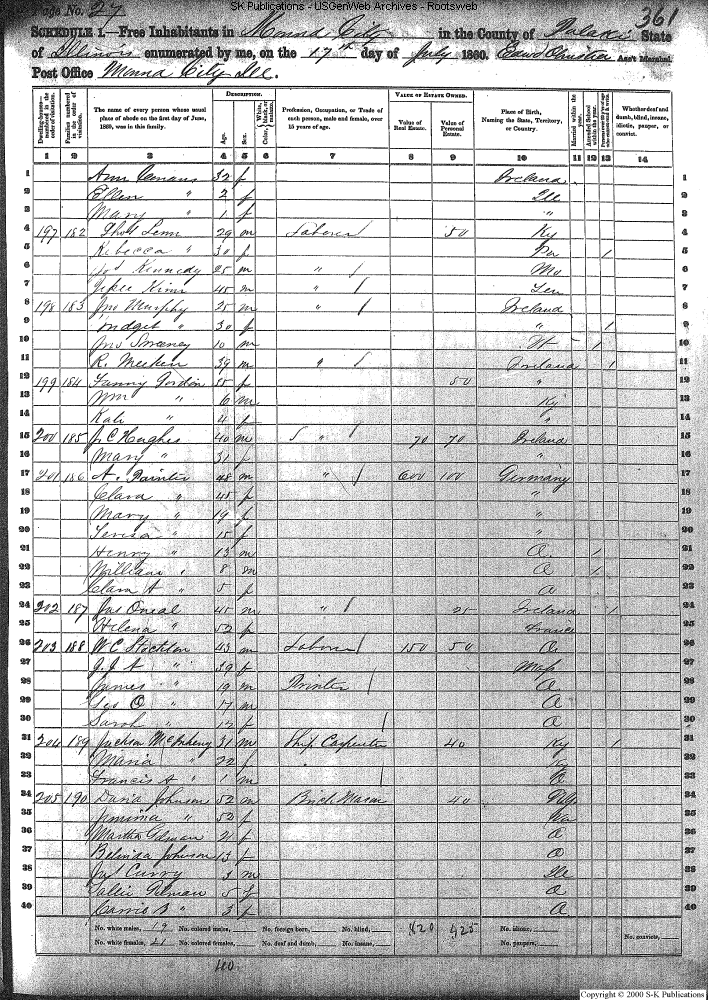 SK Publications - USGenWeb Archives - Rootsweb
Page No. 27
361
SCHEDULE 1.—Free Inhabitants in Mound City in the County of Pulaski State
of Illinois enumerated by me, on the 17th day of July 1860. Edwd Christian Ass't Marshal.
Post Office Mound City Ill.
Dwelling-houses—numbered in the order of visitation.
Families numbered in the order of visitation.
The name of every person whose usual place of abode on the first day of June, 1860, was in this family.
DESCRIPTION.
Age.
Sex.
Profession, Occupation, or Trade of each person, male and female, over 15 years of age.
VALUE OF ESTATE OWNED.
Value of Real Estate.
Value of Personal Estate.
Place of Birth, Naming the State, Territory, or Country.
Married within the year.
Attended School within the year.
Whether deaf and dumb, blind, insane, idiotic, pauper, or convict.
1 2 3 4 5 6 7 8 9 10 11 12 13 14
1 Ann 32 f Ireland 1
2 Ellen " 2 f Ill 2
3 Mary " 1 f " 3
4 197 182 29 m Laborer 50 Ky 4
5 Rebecca " 30 f 1 5
6 Kennedy 25 m " / Mo 6
7 45 m " / Ten 7
8 198 183 Jno Murphy 25 m " / Ireland 8
9 Bridget " 30 f " 1 9
10 Jno Sweeney 10 m 1 10
11 R. 39 m " / Ireland 1 11
12 199 184 Fanny Gordon 55 f 50 " 12
13 Wm " 6 m Ky 13
14 Kate " 4 f " 14
15 200 185 J C Hughes 40 m " / 70 70 Ireland 15
16 Mary " 31 f " 16
17 201 186 A. Painter 48 m " / 600 100 Germany 17
18 Clara " 45 f " 18
19 Mary " 19 f " 19
20 Teresa " 15 f " 20
21 Henry " 13 m O. 1 21
22 William " 8 m O 1 22
23 Clara A " 5 f O 23
24 202 187 Jas Oneal 45 m " / 25 Ireland 1 24
25 Helena " 52 f France 25
26 203 188 W C Stockton 43 m Laborer / 150 50 O. 26
27 J. J A " 39 f Mass 27
28 James " 19 m Printer / O. 28
29 Geo O " 17 m O 29
30 Sarah " 12 f / O 30
31 204 189 Jackson 31 m Ship Carpenter 40 Ky 1 31
32 Maria " 22 f Ky 32
33 Francis A " 1 m 33
34 205 190 Johnson 52 m Brick Mason 40 34
35 Jemima " 52 f 35
36 Martha 21 f O 36
37 Belinda Johnson 13 f O 37
38 Curry 3 m Ill 38
39 Sallie 5 f O 39
40 Carrie B " 3 f O 40
No. white males, 19 No. colored males, No. foreign born, No. blind, 820 425 No. idiotic, No. convicts,
No. white females, 21 No. colored females, No. deaf and dumb, No. insane, No. paupers,
40
Copyright © 2000 S-K Publications